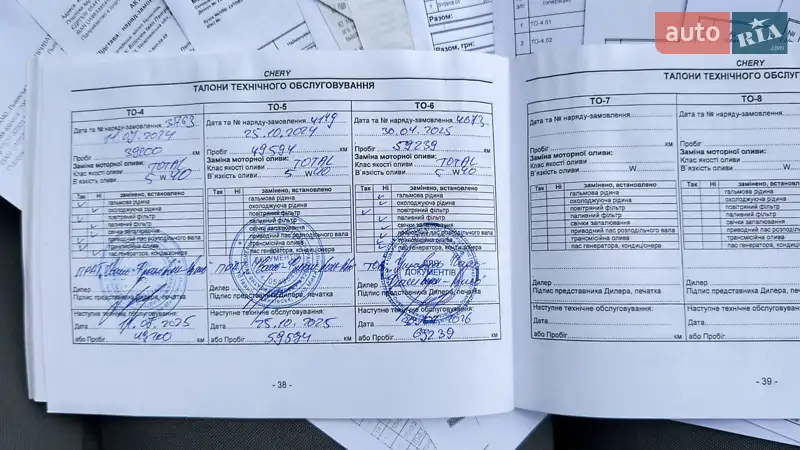 auto
RIA
.com
Разом:
Разом, грн:
(операції)
ТО-4.01
ТО-4.02
CHERY
ТАЛОНИ ТЕХНІЧНОГО ОБСЛУГОВУВАННЯ
ТО-4
Дата та № наряду-замовлення 3763
2024
Пробіг 39200 км
Заміна моторної оливи: TOTAL
Клас якості оливи
В`язкість оливи 5 W 40
Так Ні замінено, встановлено
гальмова рідина
охолоджуюча рідина
повітряний фільтр
паливний фільтр
свічки запалювання
приводний пас розподільного вала
трансмісійна олива
пас генератора, кондиціонера
Дилер
Підпис представника Дилера, печатка
Наступне технічне обслуговування:
Дата 2025
або Пробіг км
ТО-5
Дата та № наряду-замовлення 4149
25.10.2024
Пробіг 49594 км
Заміна моторної оливи: TOTAL
Клас якості оливи
В`язкість оливи 5 W 40
Так Ні замінено, встановлено
гальмова рідина
охолоджуюча рідина
повітряний фільтр
паливний фільтр
свічки запалювання
приводний пас розподільного вала
трансмісійна олива
пас генератора, кондиціонера
Дилер
Підпис представника Дилера, печатка
Наступне технічне обслуговування:
Дата 25.10.2025
або Пробіг 59594 км
ТО-6
Дата та № наряду-замовлення 4673
30.04.2025
Пробіг 59239 км
Заміна моторної оливи: TOTAL
Клас якості оливи
В`язкість оливи 5 W 40
Так Ні замінено, встановлено
гальмова рідина
охолоджуюча рідина
повітряний фільтр
паливний фільтр
свічки запалювання
приводний пас розподільного вала
трансмісійна олива
пас генератора, кондиціонера
ДОКУМЕНТІВ
Дилер
Підпис представника Дилера, печатка
Наступне технічне обслуговування:
Дата
або Пробіг 69239 км
- 38 -
CHERY
ТАЛОНИ ТЕХНІЧНОГО ОБСЛУГ
ТО-7
Дата та № наряду-замовлення
Пробіг км
Заміна моторної оливи:
Клас якості оливи
В`язкість оливи W
Так Ні замінено, встановлено
гальмова рідина
охолоджуюча рідина
повітряний фільтр
паливний фільтр
свічки запалювання
приводний пас розподільного вала
трансмісійна олива
пас генератора, кондиціонера
Дилер
Підпис представника Дилера, печатка
Наступне технічне обслуговування:
Дата
або Пробіг км
ТО-8
Дата та № наряду-замовлення
Пробіг
Заміна моторної оливи:
Клас якості оливи
В`язкість оливи W
Так Ні замінено, встановл
гальмова рідина
охолоджуюча рідина
повітряний фільтр
паливний фільтр
свічки запалювання
приводний пас розпо
трансмісійна олива
пас генератора, конд
Дилер
Підпис представника Дилера, п
Наступне технічне обслуговуван
Дата
або Пробіг
- 39 -